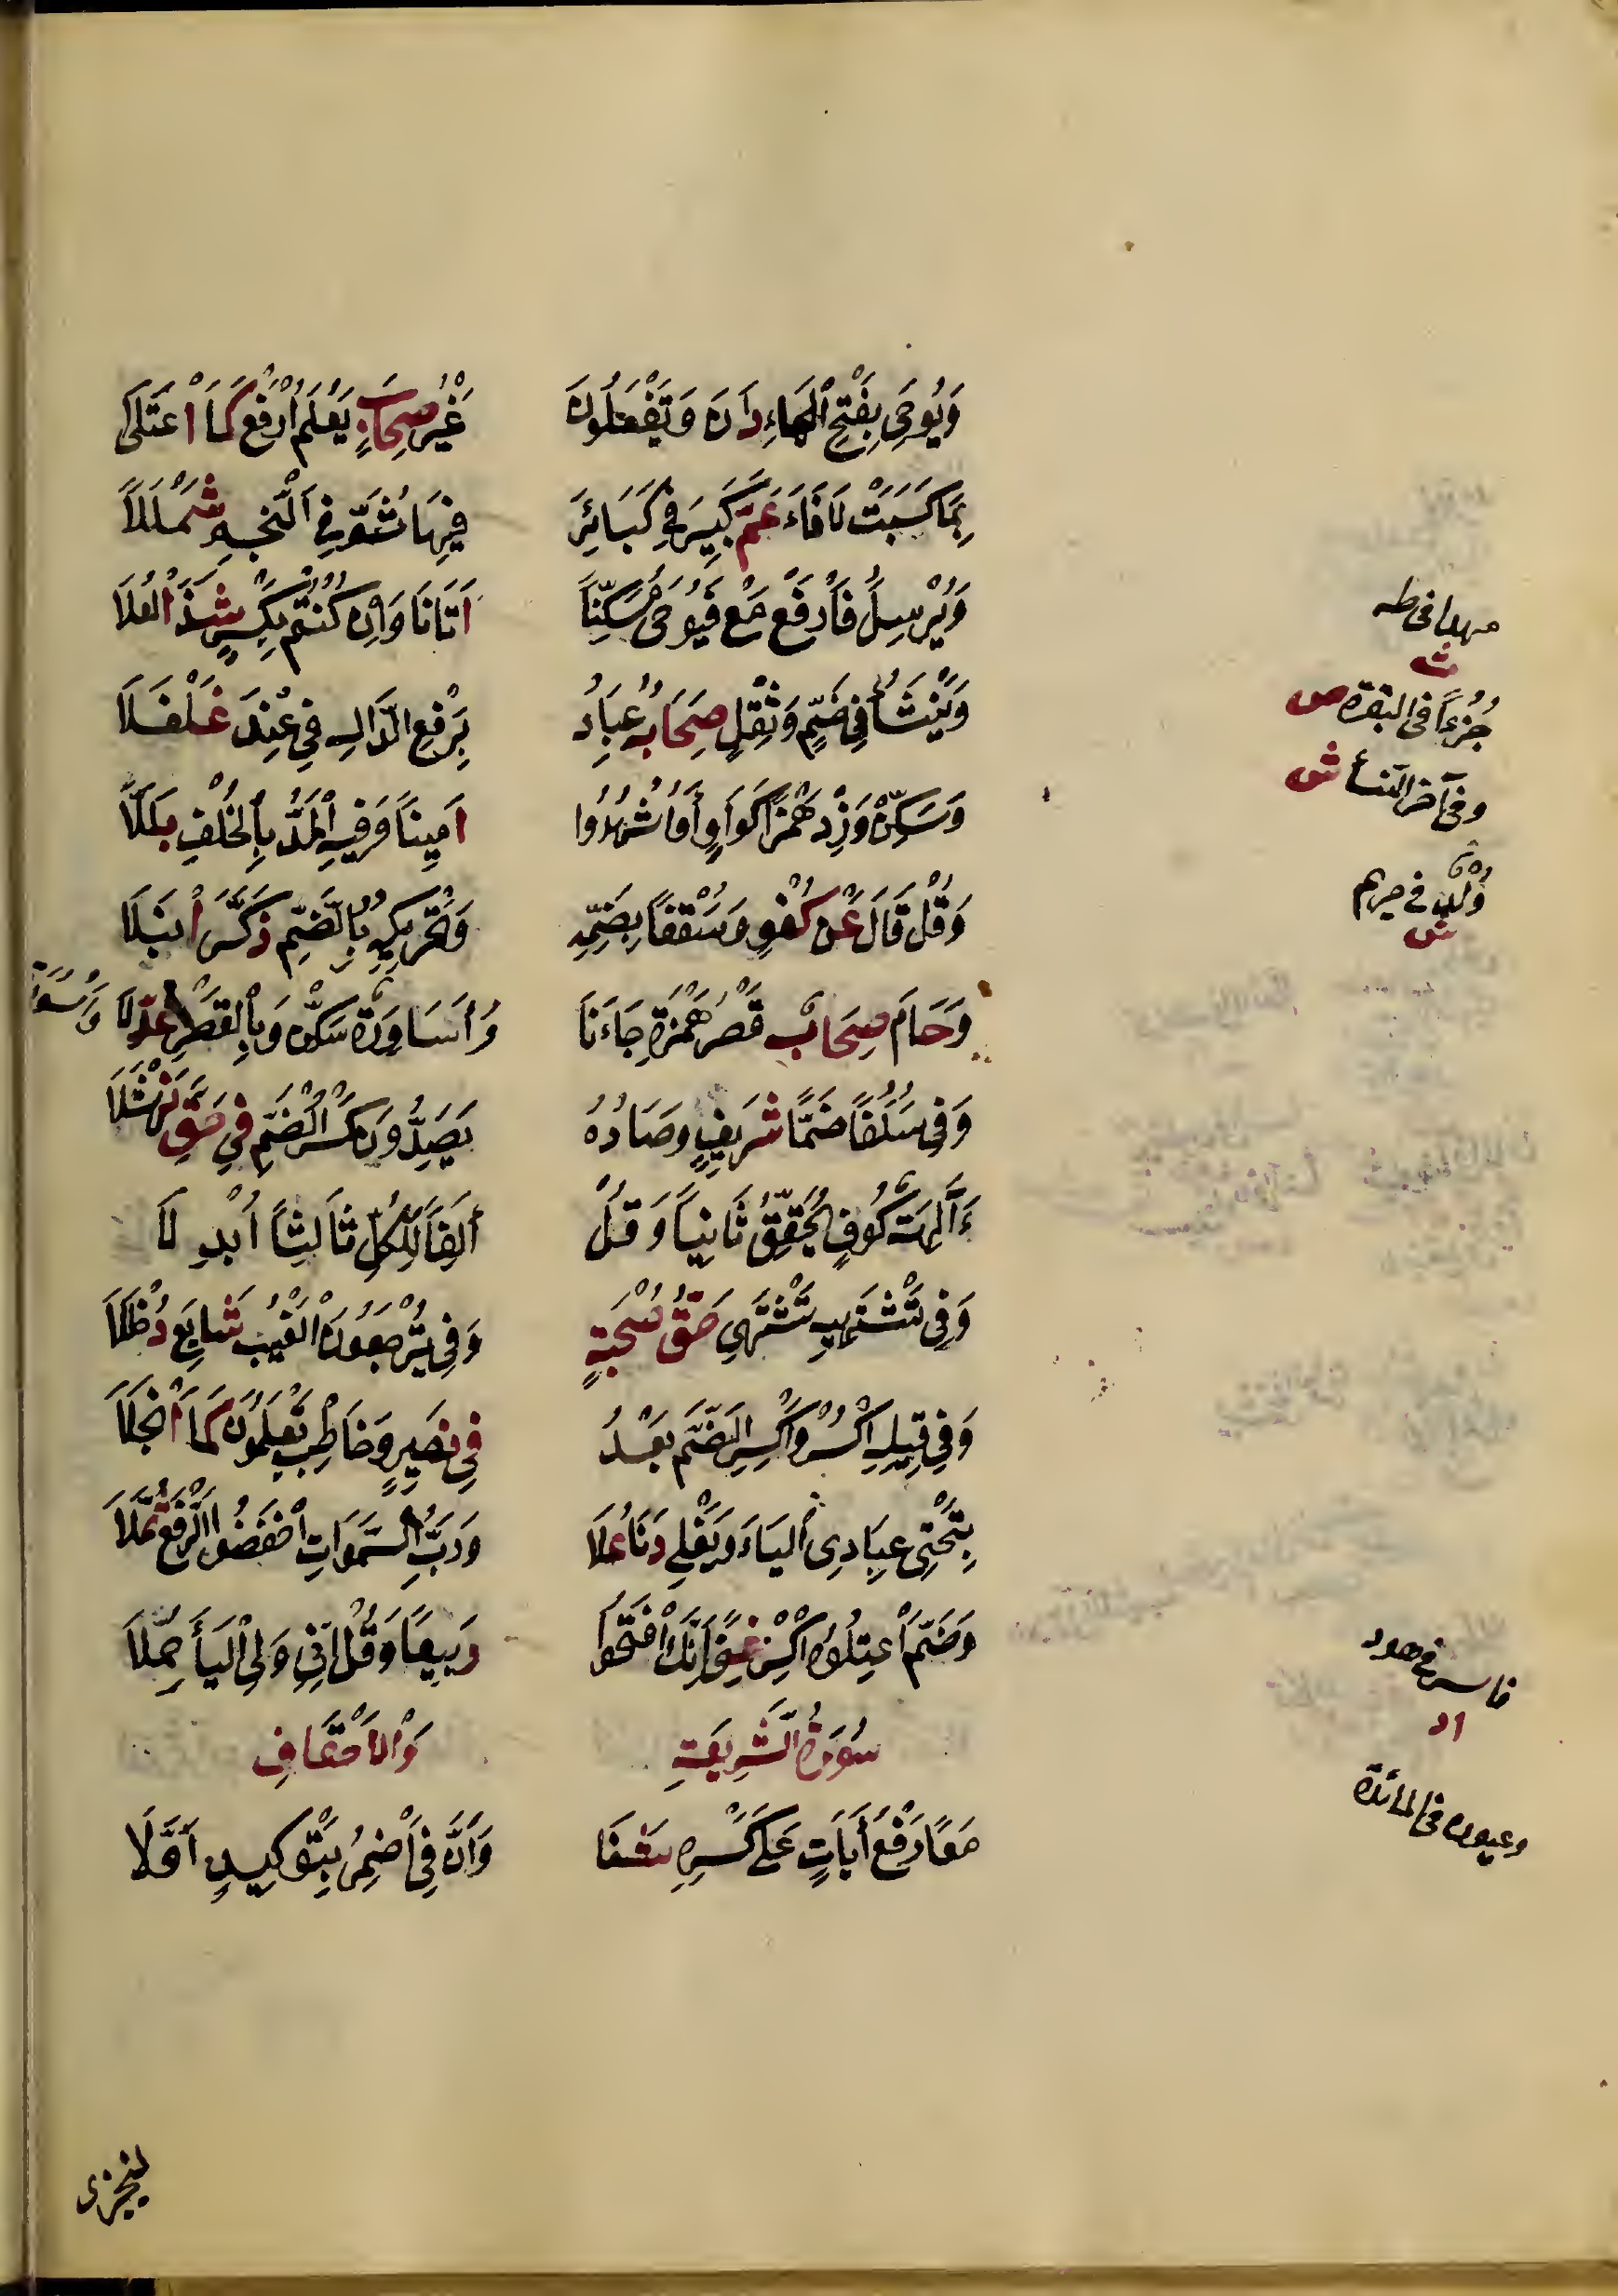 وَيُوحَى بِفَتْحِ الْحَاءِ دَانَ وَيَفْعَلُونَ غَيْرُ صِحَابٍ يَعْلَمَ ارْفَعْ كَمَا اعْتَلَى
بِمَا كَسَبَتْ لَا فَاءَ عَمَّ كَبِيرَ فِي كَبَائِرَ فِيهَا ثُمَّ فِي النَّجْمِ شَمْلَلَا
وَيُرْسِلُ فَارْفَعْ مَعْ فَيُوحَى مُسَكِّنًا أَتَانَا وَاِنْ كُنْتُمْ بِكَسْرٍ شَذَ الْعُلَا
وَيَنْشَأُ فِي ضَمٍّ وَثِقْلٍ صِحَابُهُ عِبَادُ بِرَفْعِ الدَّالِ فِي عِنْدَ غَلْغَلَا
وَسَكِّنْ وَزِدْ هَمْزًا كَوَاوٍ أَؤُشْهِدُوا اَمِينًا وَفِيهِ الْمَدُّ بِالْخُلْفِ بَلَّلَا
وَقُلْ قَالَ عَنْ كُفْوٍ وَسَقْفًا بِضَمِّهِ وَتَحْرِيكِهِ بِالضَّمِّ ذَكَّرَ أَنْبَلَا
وَحُكْمُ صِحَابٍ قَصْرُ هَمْزَةِ جَاءَنَا وَأَسَاوِرَةٌ سَكِّنْ وَبِالْقَصْرِ عُدِّلَا
وَفِي سَلَفًا ضَمَّا شَرِيفٍ وَصَادُهُ يَصِدُّونَ كَسْرُ الضَّمِّ فِي حَقِّ نَهْشَلَا
ءَآلِهَةٌ كُوفٍ يُحَقِّقُ ثَانِيًا وَقُلْ أَلِفًا لِلْكُلِّ ثَالِثًا اُبْدِلَا
وَفِي تَشْتَهِيهِ تَشْتَهِي حَقُّ صُحْبَةٍ وَفِي يُرْجَعُونَ الْغَيْبُ شَايَعَ دُخْلُلَا
وَفِي قِيلِهِ اكْسِرْ وَاكْسِرِ الضَّمَّ بَعْدُ فِي نَصِيرٍ وَخَاطِبْ تَعْلَمُونَ كَمَا انْجَلَا
بِتَحْتِي عِبَادِي الْيَاءَ وَيَغْلِي دَنَا عُلًا وَرَبُّ السَّمَوَاتِ اخْفَضُوا الرَّفْعَ ثُمَّلَا
وَضَمَّ اعْتِلُوهُ اكْسِرْ غِنًى إِنَّكَ افْتَحُوا رَبِيعًا وَقُلْ اِنِّي وَلِي الْيَاءُ حُمِّلَا
سُورَةُ الشَّرِيعَةِ وَالْأَحْقَافِ
مَعًا رَفْعُ أَيَاتٍ عَلَى كَسْرِهِ شَفَا وَاَنَّ وَفِي أَضْمِرْ بِتَوْكِيدٍ اَوَّلَا
مهدا فى طه
ث
جُزْءًا فى البقرة ص
وفى آخر النسأ ش
فى مريم
ش
فاسر فى هود
اد
وعيون فى المائدة
لنجزى